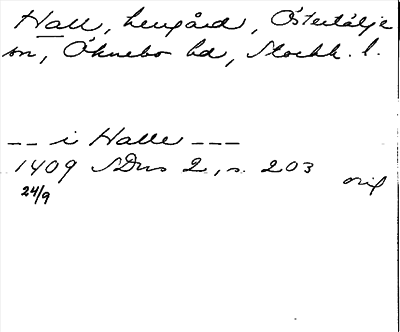 Hall, herrgård, Östertälje
sn, Öknebo hd, Stockh. l.
-- i Halle ---
1409 SDns 2, s. 203 orig
24/9